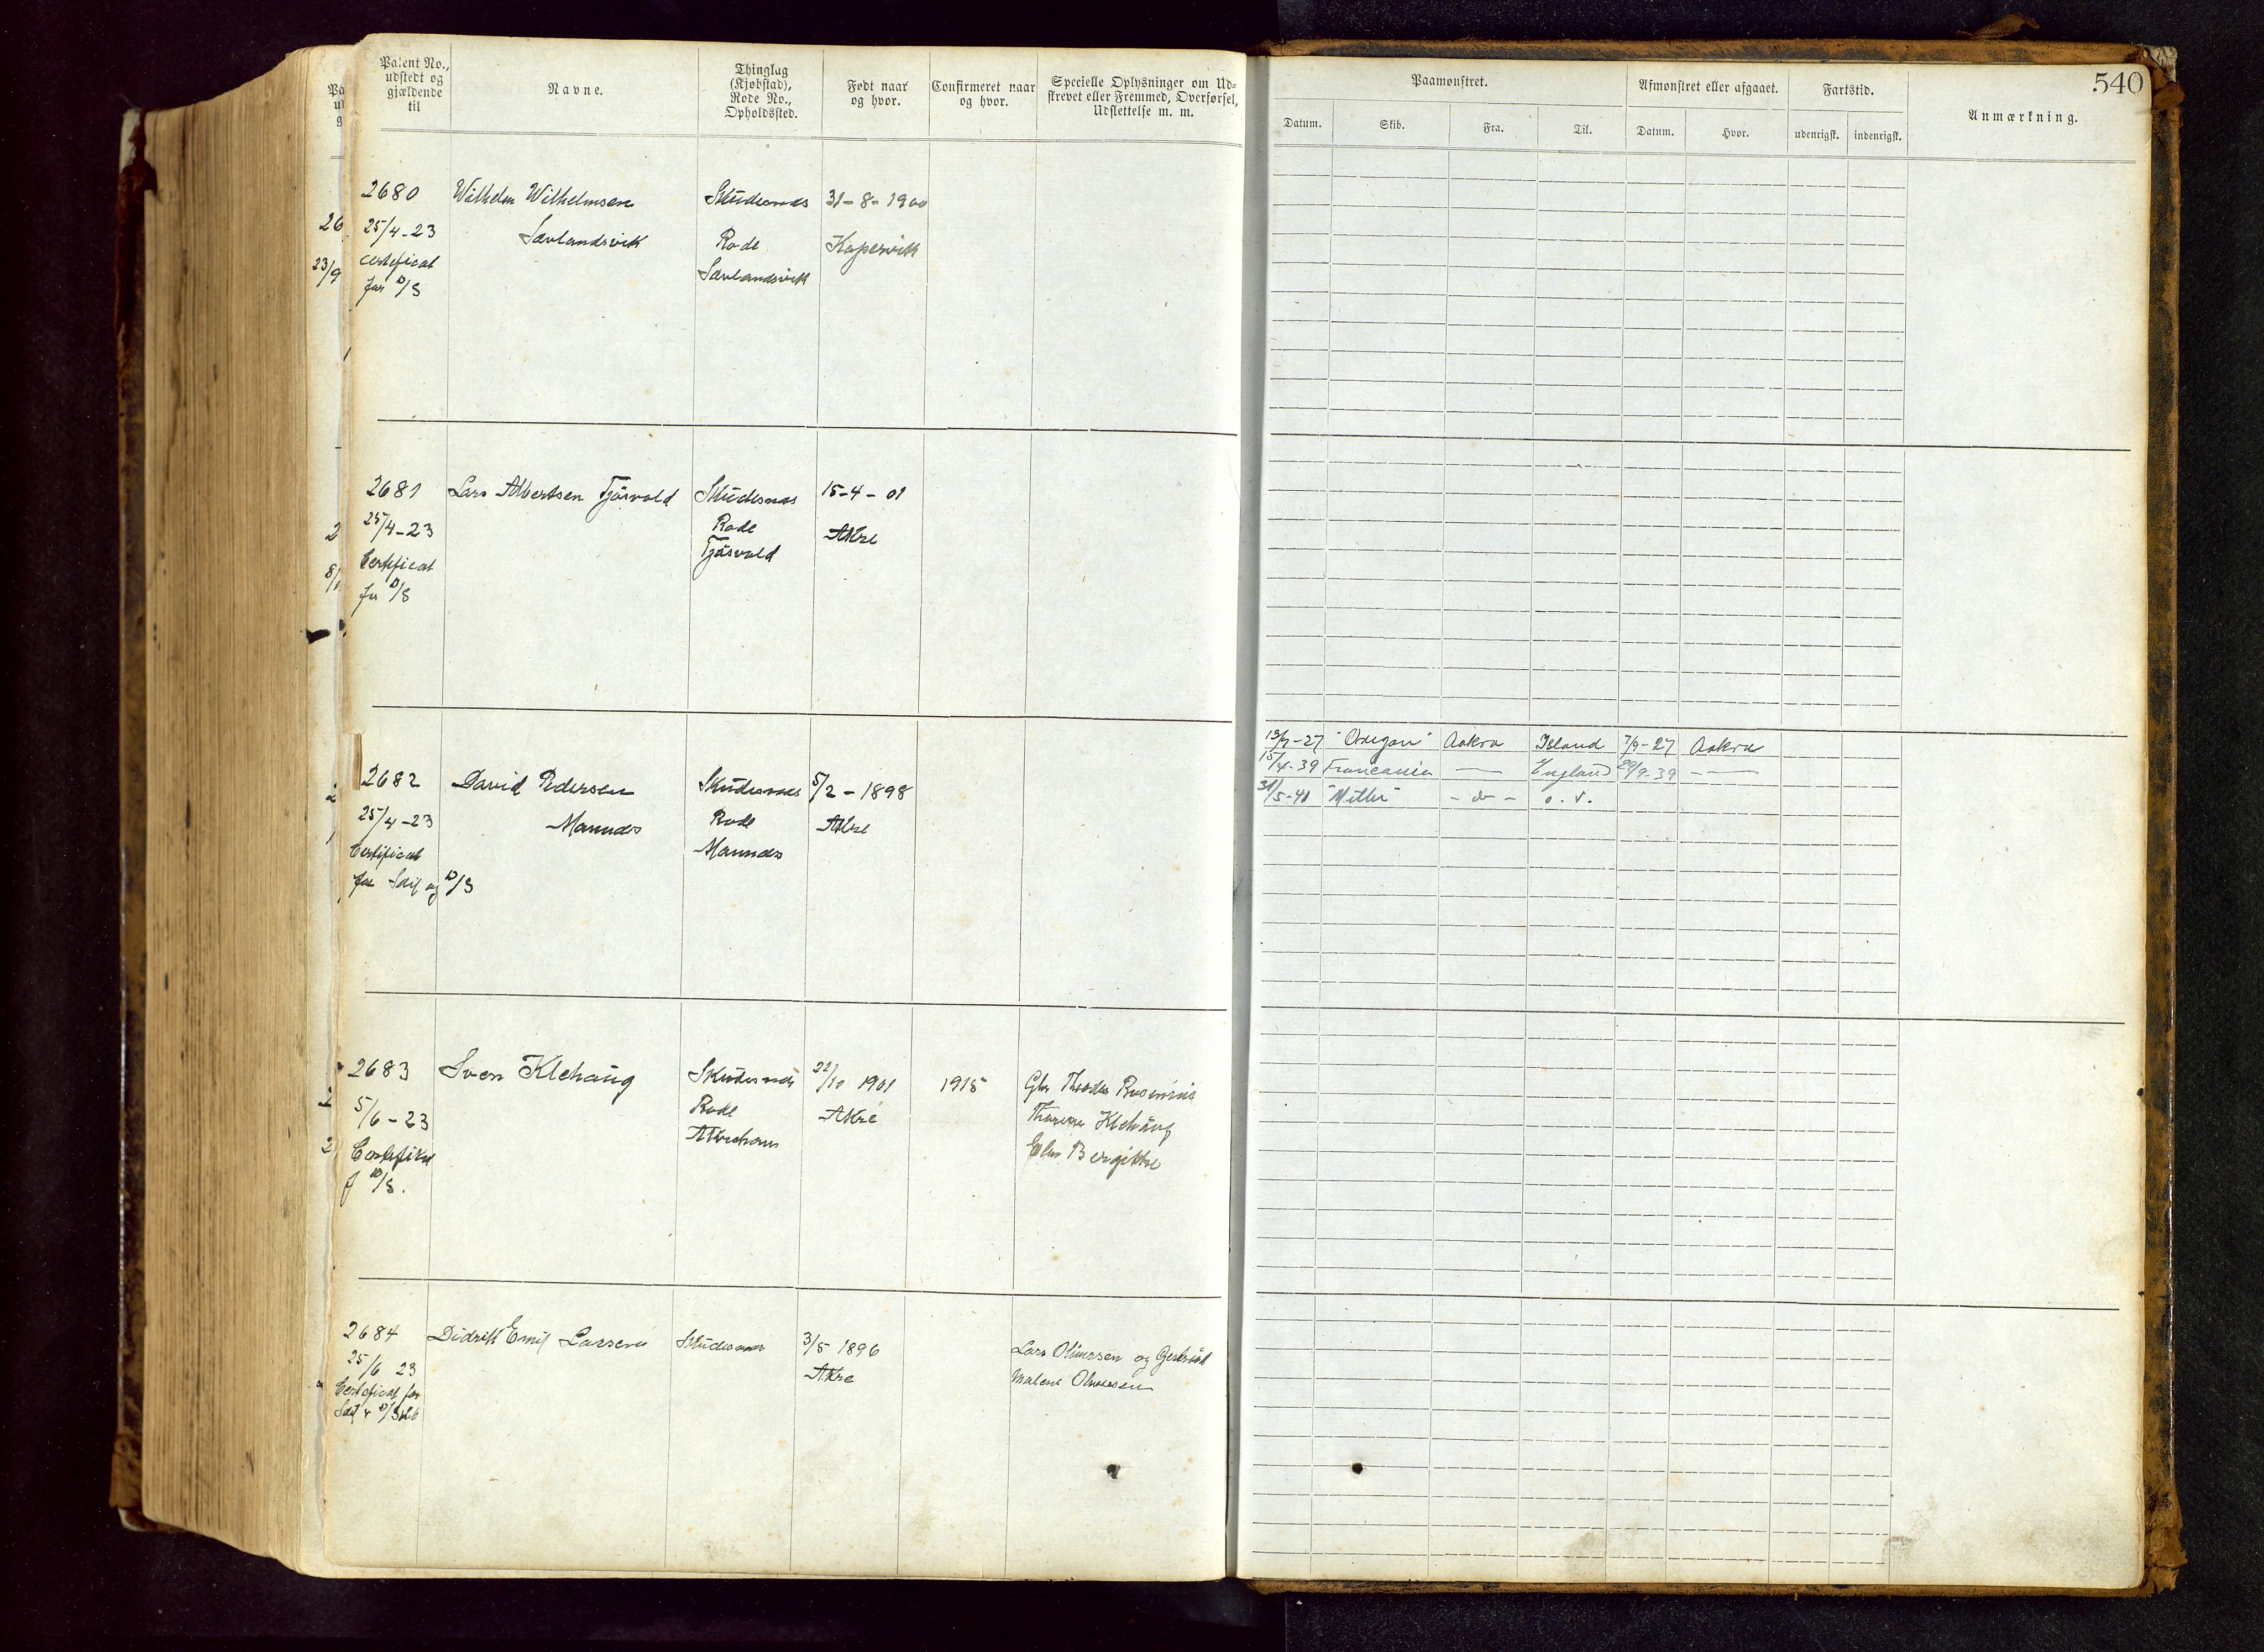 Patent No.,
udstedt og
gjældende
til
Navne.
Thinglag
(Kjøbstad),
Rode No.,
Opholdssted.
Født naar
og hvor.
Confirmeret naar
og hvor.
Specielle Oplysninger om Ud-
skrevet eller Fremmed, Overførsel,
Udslettelse m. m.
2680 Wilhelm Wilhelmsen Skudesnes 31-8-1900
25/4-23 Sævlandsvik Rode Kopervik
certificat Sævlandsvik
for D/S
2681 Lars Albertsen Tjösvold Skudesnes 15-4-01
25/4-23 Rode Akre
Certificat Tjösvold
for D/S
2682 David Pedersen Skudesnes 5/2-1898
25/4-23 Mannes Rode Akre
Certificat Mannes
for Seil og D/S
2683 Sven Klehaug Skudesnes 22/10 1901 1915 Thodor
5/6-23 Rode Akre Klehaug
Certifikat Akrehavn Bergitte
f D/S.
2684 Didrik Emil Larsen Skudesnes 3/5 1896 Lars Olinessen og Gertrud
25/6 23 Akre Malene
Certificat for
Seil
540
Paamønstret.
Afmønstret eller afgaaet.
Fartstid.
Anmærkning.
Datum. Skib. Fra. Til. Datum. Hvor. udenrigsk. indenrigsk.
13/7-27 "Oregon" Aakra Island 7/9-27 Aakra
15/4-39 Franconia — England 29/9-39 —
31/5-40 - d - o. v.